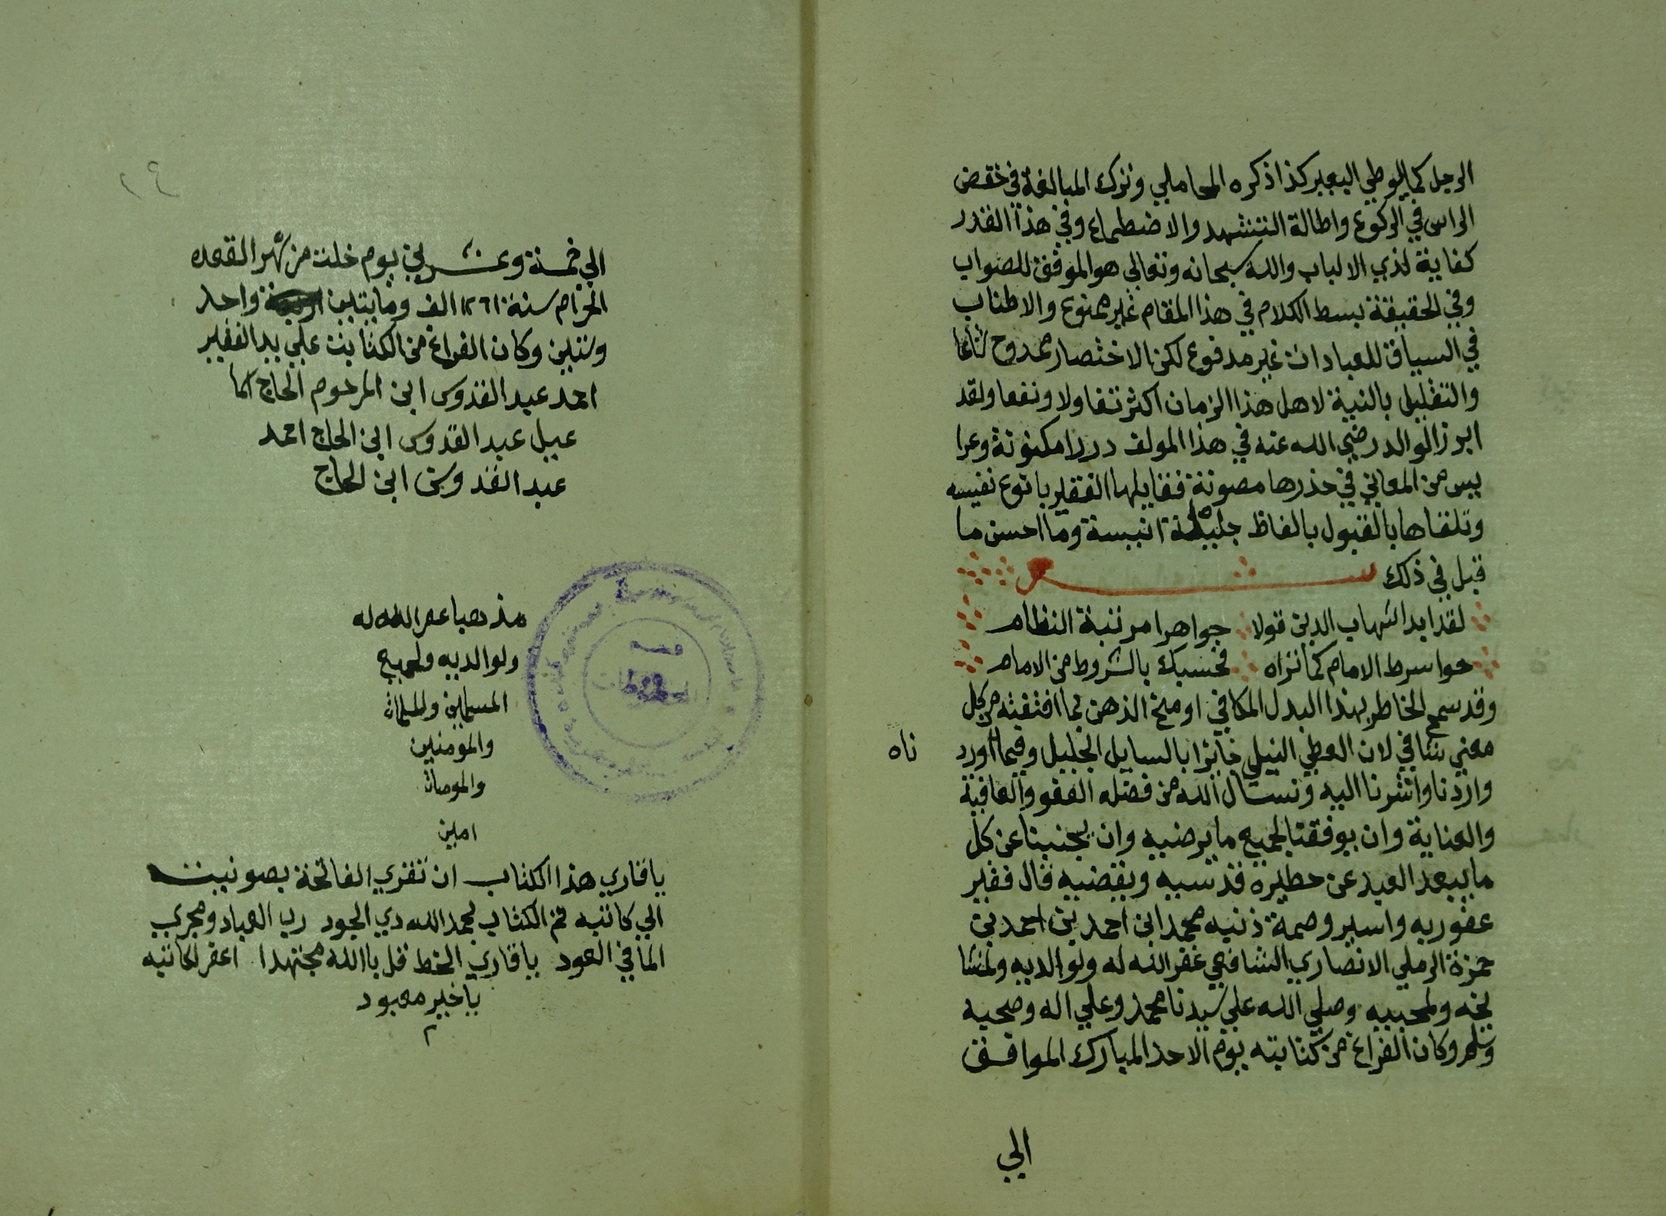 الرجل كما يوطي البعير كذا ذكره المحاملي وترك المبالغة في خفض
الراس في الركوع واطالة التشهد والاضطباع وفي هذا القدر
كفاية لذي الالباب والله سبحانه وتعالى هو الموفق للصواب
وفي الحقيقة بسط الكلام في هذا المقام غير ممنوع والاطناب
في السياق للعبادات غير مدفوع لكن الاختصار ممدوح
والتقليل بالنية لاهل هذا الزمان اكثر تفاولا ونفعا ولقد
ابرز الوالد رضي الله عنه في هذا المولف دررا مكنونة وعرا
يس من المعاني في خذرها مصونة فقابلها الفقير بانوع نفيسه
وتلقاها بالقبول بالفاظ جليلة انيسة وما احسن ما
قيل في ذلك شعر
لقد ابد الشهاب الدين قولا جواهرا مرتبة النظام
حوا شرط الامام كما نراه فحسبك بالشروط من الامام
وقد سمح الخاطر بهذا البدل المكافي او منح الذهن لما افتقيته من كل
معني شافي لان العطي النيل جائزا بالسايل الجليل وفيما اورد
ناه
واردنا واشرنا اليه ونسئال الله من فضله العفو والعافية
والعناية وان يوفقنا لجميع ما يرضيه وان يجنبنا عن كل
ما يبعد العبد عن حظيرة قدسيه ويقضيه قال فقير
عفو ربه واسير وصمة ذنبه محمد ابن احمد بن احمد بن
حمزة الرملي الانصاري الشافعي غفر الله له ولوالديه ولمشا
يخه ولمحبيه وصلي الله علي سيدنا محمد وعلي اله وصحبه
وسلم وكان الفراغ من كتابته يوم الاحد المبارك الموافق
الي
الي خمسة وعشرين يوم خلت من شهر القعده
الحرام سنة ١٢٦١ الف ومايتين واحد
وستين وكان الفراغ من الكتابت علي يد الفقير
احمد عبد القدوس ابن المرحوم الحاج
عبد القدوس ابن الحاج احمد
عبد القدوس ابن الحاج
مذهبا غفر الله له
ولوالديه ولجميع
المسلمين والمسلمات
والمومنين
والمومنات
امين
يا قاري هذا الكتاب ان تقري الفاتحة بصونيت
الي كاتبه تم الكتاب بحمد الله ذي الجود رب العباد ومجري
الما في العود يا قاري الخط قل بالله مجتهدا اغفر لكاتبه
يا خير معبود
٢
قسم
المخطوطات